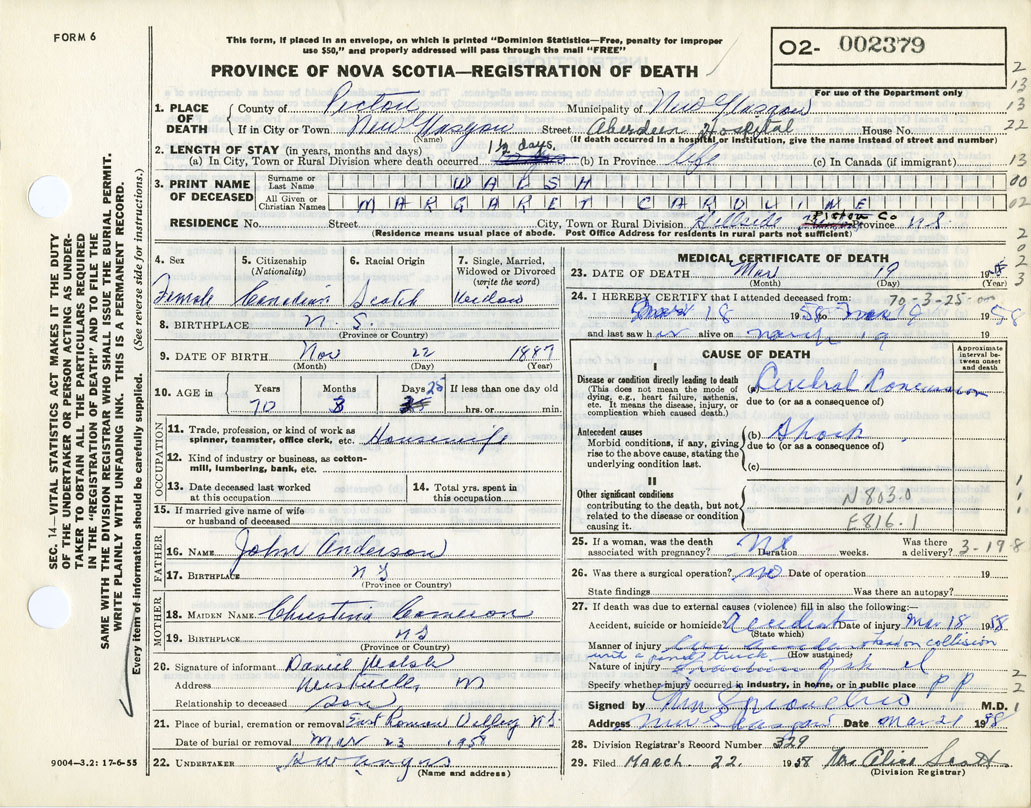 FORM 6
This form, if placed in an envelope, on which is printed "Dominion Statistics—Free, penalty for improper
use $50," and properly addressed will pass through the mail "FREE"
O2- 002379
PROVINCE OF NOVA SCOTIA—REGISTRATION OF DEATH
For use of the Department only
1. PLACE OF DEATH
County of Pictou Municipality of New Glasgow
If in City or Town New Glasgow Street Aberdeen Hospital House No.
(Name) (If death occurred in a hospital or institution, give the name instead of street and number)
2. LENGTH OF STAY (in years, months and days) 1½ days,
(a) In City, Town or Rural Division where death occurred (b) In Province life (c) In Canada (if immigrant)
3. PRINT NAME OF DECEASED
Surname or Last Name WALSH
All Given or Christian Names MARGARET CAROLINE
RESIDENCE No. Street City, Town or Rural Division Hillside Pictou Co Province N.S
(Residence means usual place of abode. Post Office Address for residents in rural parts not sufficient)
4. Sex Female
5. Citizenship (Nationality) Canadian
6. Racial Origin Scotch
7. Single, Married, Widowed or Divorced (write the word) Widow
8. BIRTHPLACE N.S.
(Province or Country)
9. DATE OF BIRTH Nov 22 1887
(Month) (Day) (Year)
10. AGE in Years 70 Months 3 Days 25 If less than one day old
hrs. or min.
OCCUPATION
11. Trade, profession, or kind of work as
spinner, teamster, office clerk, etc. Housewife
12. Kind of industry or business, as cotton-
mill, lumbering, bank, etc.
13. Date deceased last worked
at this occupation
14. Total yrs. spent in
this occupation
15. If married give name of wife
or husband of deceased
FATHER
16. NAME John Anderson
17. BIRTHPLACE N S
(Province or Country)
MOTHER
18. MAIDEN NAME Christina Cameron
19. BIRTHPLACE N S
(Province or Country)
20. Signature of informant Daniel Walsh
Address Westville, N
Relationship to deceased son
21. Place of burial, cremation or removal East Valley N.S.
Date of burial or removal MAR 23 1958
22. UNDERTAKER H W Angus
(Name and address)
9004—3.2: 17-6-55
MEDICAL CERTIFICATE OF DEATH
23. DATE OF DEATH Mar 19 19
(Month) (Day) (Year)
70-3-25-
24. I HEREBY CERTIFY that I attended deceased from:
Mar 18 1958 to Mar 19 1958
and last saw her alive on March 19 19
CAUSE OF DEATH
Approximate interval between onset and death
I
Disease or condition directly leading to death
(This does not mean the mode of
dying, e.g., heart failure, asthenia,
etc. It means the disease, injury, or
complication which caused death.)
(a) Cerebral Concussion
due to (or as a consequence of)
Antecedent causes
Morbid conditions, if any, giving
rise to the above cause, stating the
underlying condition last.
(b) Shock
due to (or as a consequence of)
(c)
II
Other significant conditions
contributing to the death, but not
related to the disease or condition
causing it.
N 803.0
E816.1
25. If a woman, was the death
associated with pregnancy? No Duration weeks. Was there
a delivery? 3-19 8
26. Was there a surgical operation? no Date of operation 19
State findings Was there an autopsy?
27. If death was due to external causes (violence) fill in also the following:—
Accident, suicide or homicide? Accident Date of injury Mar 18 1958
(State which)
Manner of injury Car head on collision
with a truck (How sustained)
Nature of injury fracture of skull
Specify whether injury occurred in industry, in home, or in public place p p
Signed by M.D.
Address New Glasgow Date Mar 21 1958
28. Division Registrar's Record Number 329
29. Filed MARCH. 22. 1958 Mrs Alice Scott
(Division Registrar)
SEC. 14—VITAL STATISTICS ACT MAKES IT THE DUTY
OF THE UNDERTAKER OR PERSON ACTING AS UNDER-
TAKER TO OBTAIN ALL THE PARTICULARS REQUIRED
IN THE "REGISTRATION OF DEATH" AND TO FILE THE
SAME WITH THE DIVISION REGISTRAR WHO SHALL ISSUE THE BURIAL PERMIT.
WRITE PLAINLY WITH UNFADING INK. THIS IS A PERMANENT RECORD.
Every item of information should be carefully supplied. (See reverse side for instructions.)
2
13
13
22
13
00
02
2
0
2
3
1
1
1
2
2
1